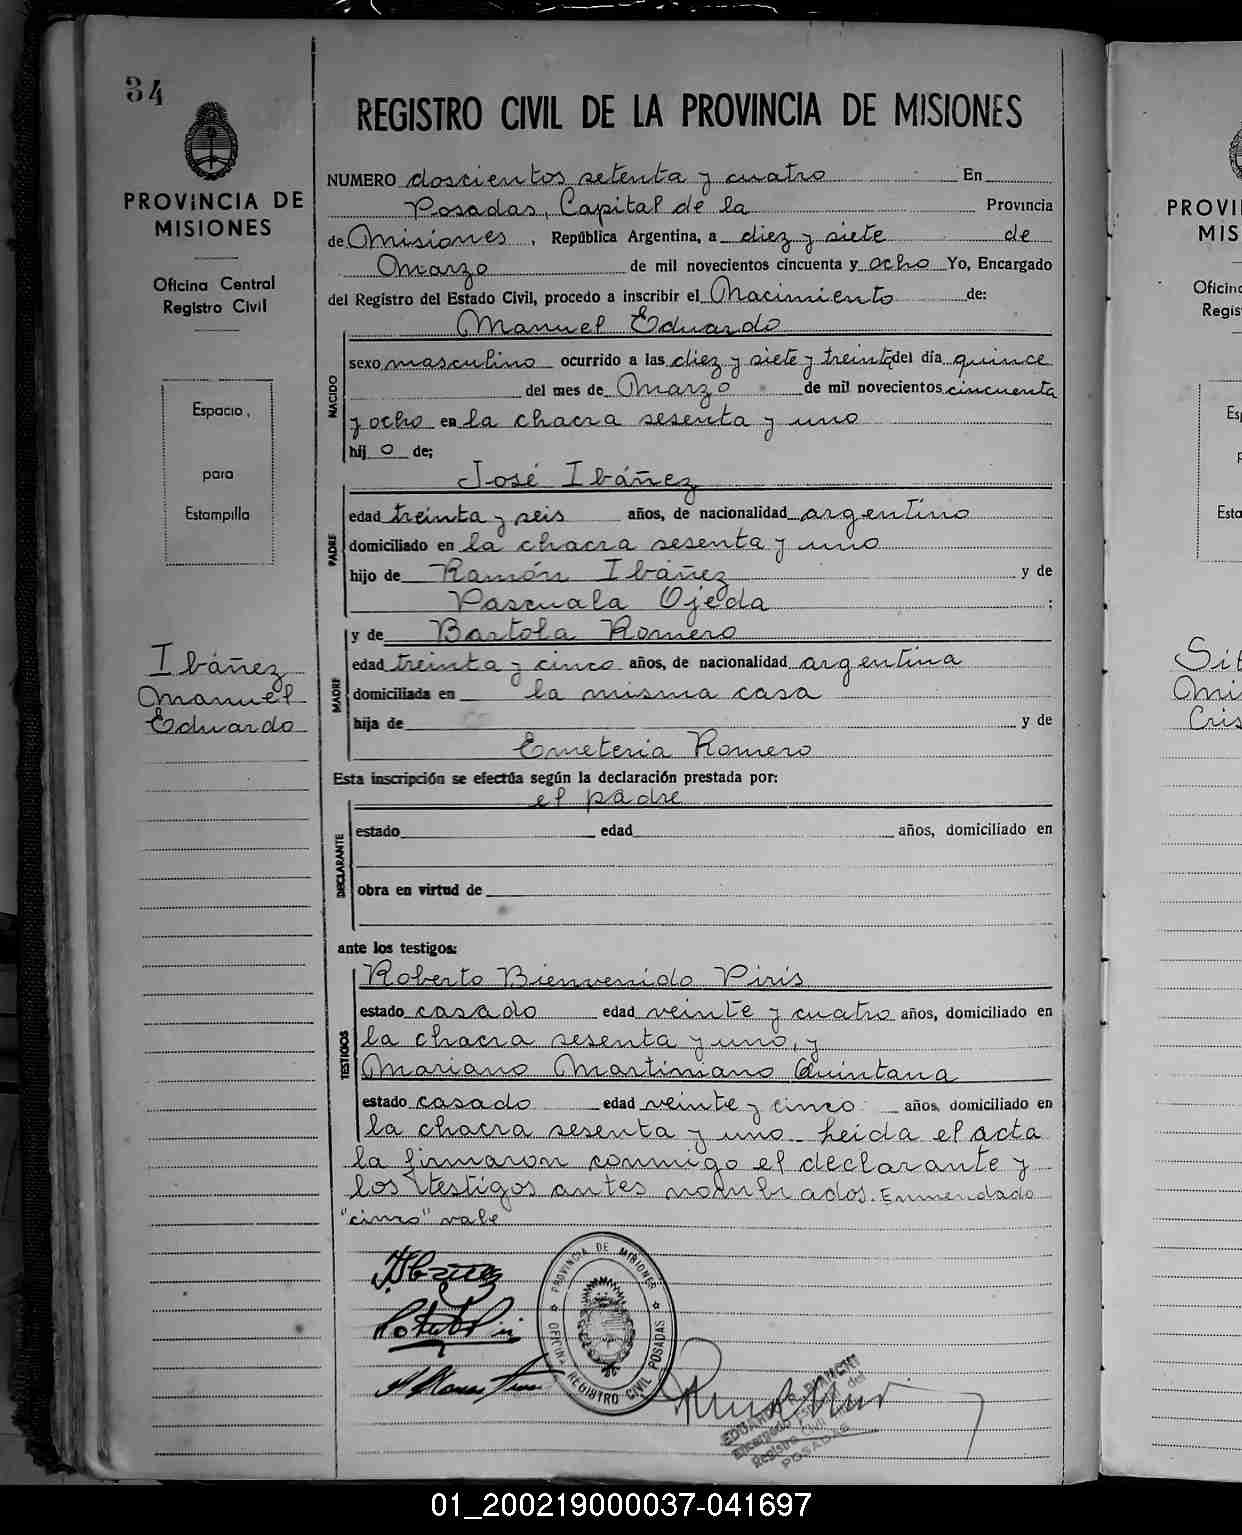 34
PROVINCIA DE
MISIONES
Oficina Central
Registro Civil
Espacio,
para
Estampilla
Ibáñez
Manuel
Eduardo
REGISTRO CIVIL DE LA PROVINCIA DE MISIONES
NUMERO doscientos setenta y cuatro En
Posadas, Capital de la Provincia
de Misiones, República Argentina, a diez y siete de
Marzo de mil novecientos cincuenta y ocho Yo, Encargado
del Registro del Estado Civil, procedo a inscribir el Nacimiento de:
Manuel Eduardo
NACIDO
sexo masculino ocurrido a las diez y siete y treinta del día quince
del mes de Marzo de mil novecientos cincuenta
y ocho en la chacra sesenta y uno
hij o de;
José Ibáñez
PADRE
edad treinta y seis años, de nacionalidad argentino
domiciliado en la chacra sesenta y uno
hijo de Ramón Ibáñez y de
Pascuala Ojeda ;
y de Bartola Romero
MADRE
edad treinta y cinco años, de nacionalidad argentina
domiciliada en la misma casa
hija de y de
Emeteria Romero
Esta inscripción se efectúa según la declaración prestada por:
el padre
DECLARANTE
estado edad años, domiciliado en
obra en virtud de
ante los testigos:
TESTIGOS
Roberto Bienvenido Piris
estado casado edad veinte y cuatro años, domiciliado en
la chacra sesenta y uno, y
Mariano Martiniano Quintana
estado casado edad veinte y cinco años, domiciliado en
la chacra sesenta y uno. Leida el acta
la firmaron conmigo el declarante y
los testigos antes nombrados. Enmendado
"cinco" vale
PROVINCIA DE MISIONES
OFICINA REGISTRO CIVIL POSADAS
EDUARDO BIANCHI
Registro Civil
POSADAS
PROVI
MIS
Oficina
Regis
Esp
Esta
Mi
Cris
01_200219000037-041697